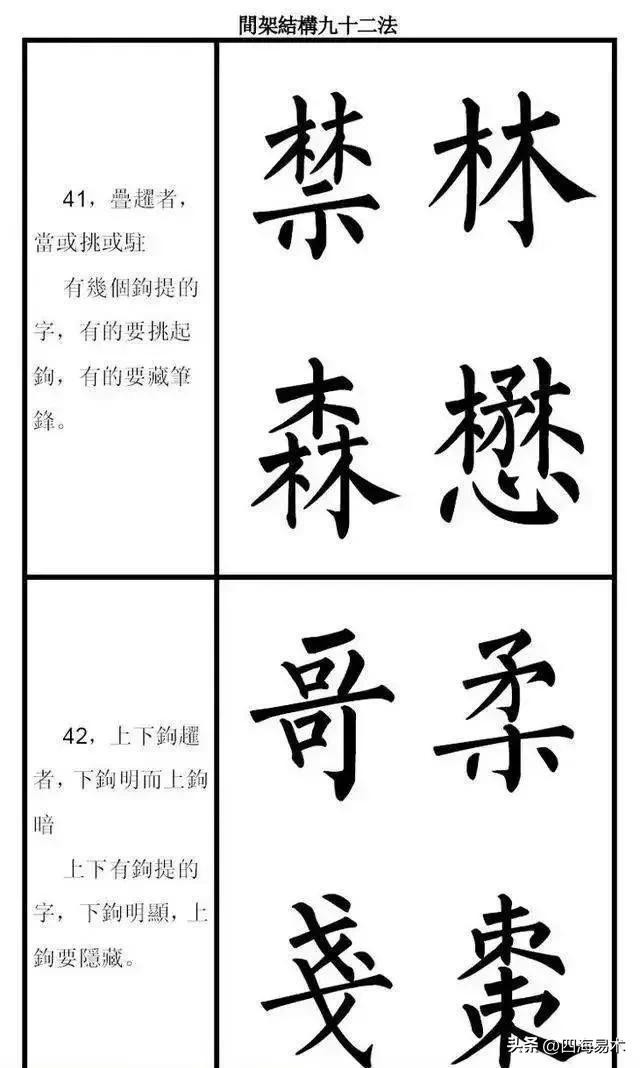 間架結構九十二法
41，疊趯者，
當或挑或駐
有幾個鉤提的
字，有的要挑起
鉤，有的要藏筆
鋒。
禁 林
森 懋
42，上下鉤趯
者，下鉤明而上鉤
暗
上下有鉤提的
字，下鉤明顯，上
鉤要隱藏。
哥 柔
戔 棗
头条 @四海易木